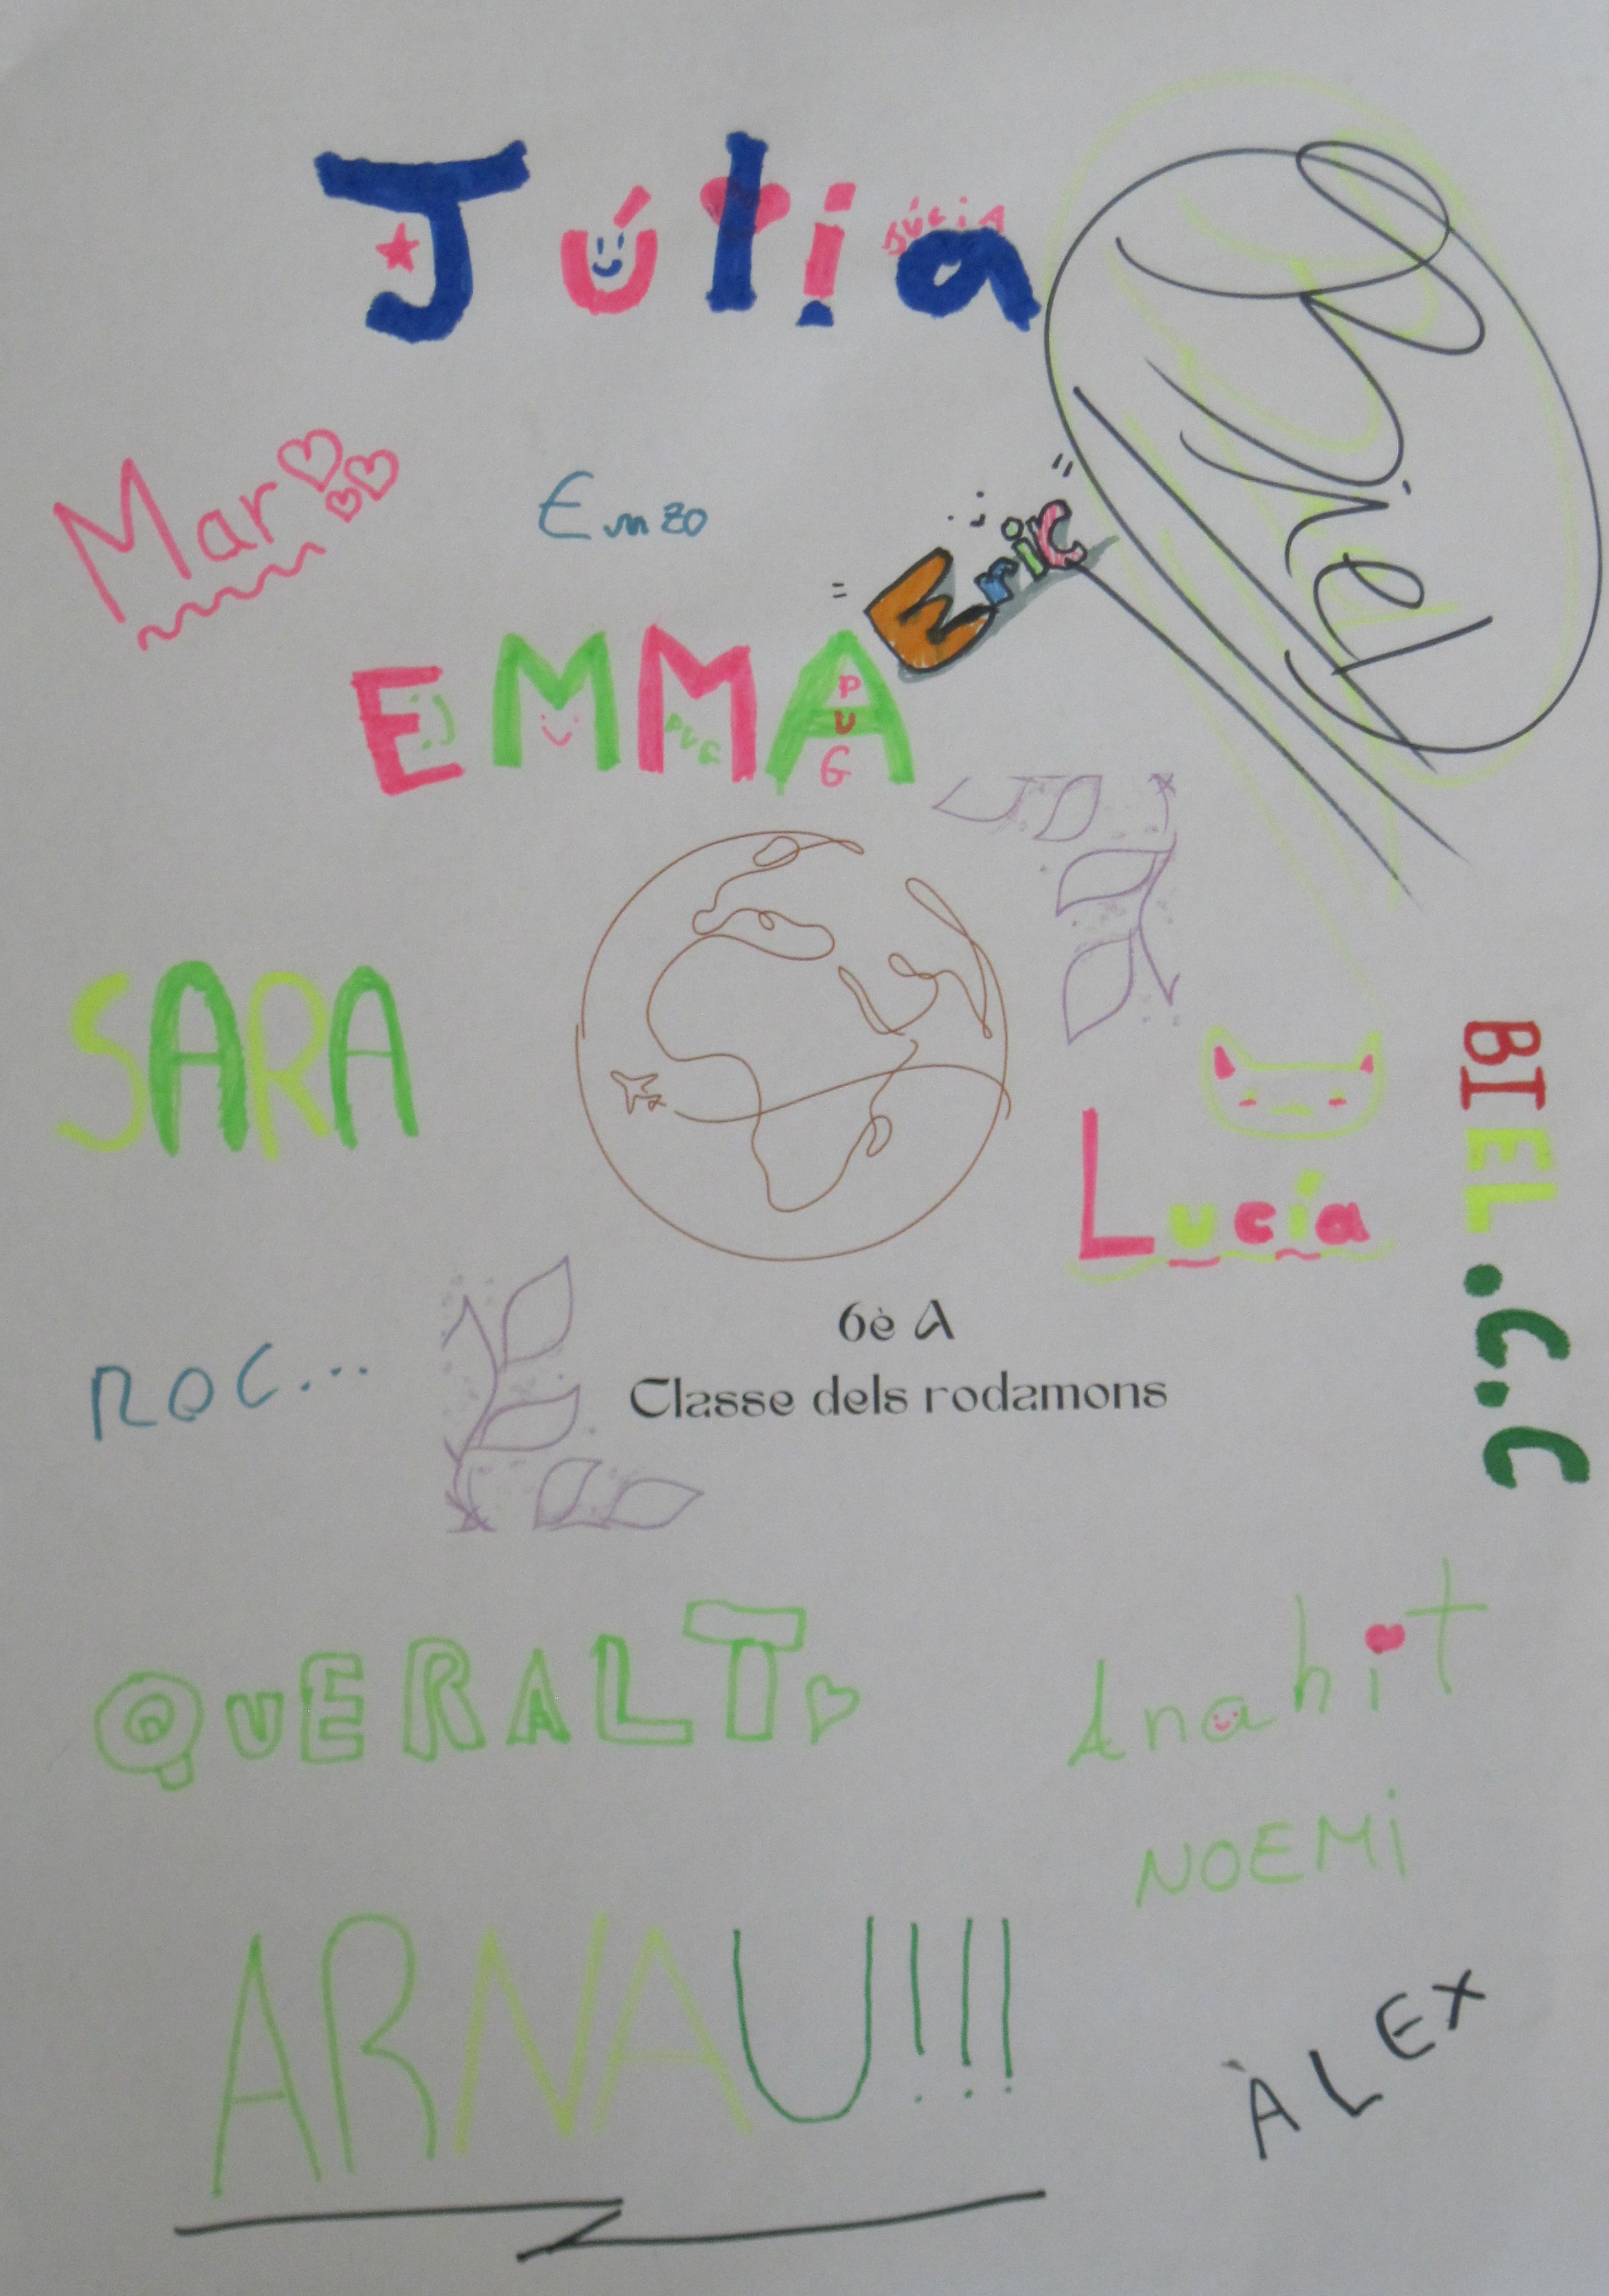 Júlia
JÚLIA
Biel
Mar
Enzo
Eric
EMMA
PUG
PUG
SARA
Lucía
BIEL.C.C
6è A
Classe dels rodamons
ROC...
QUERALT
Anahit
NOEMI
ARNAU!!!
ÀLEX